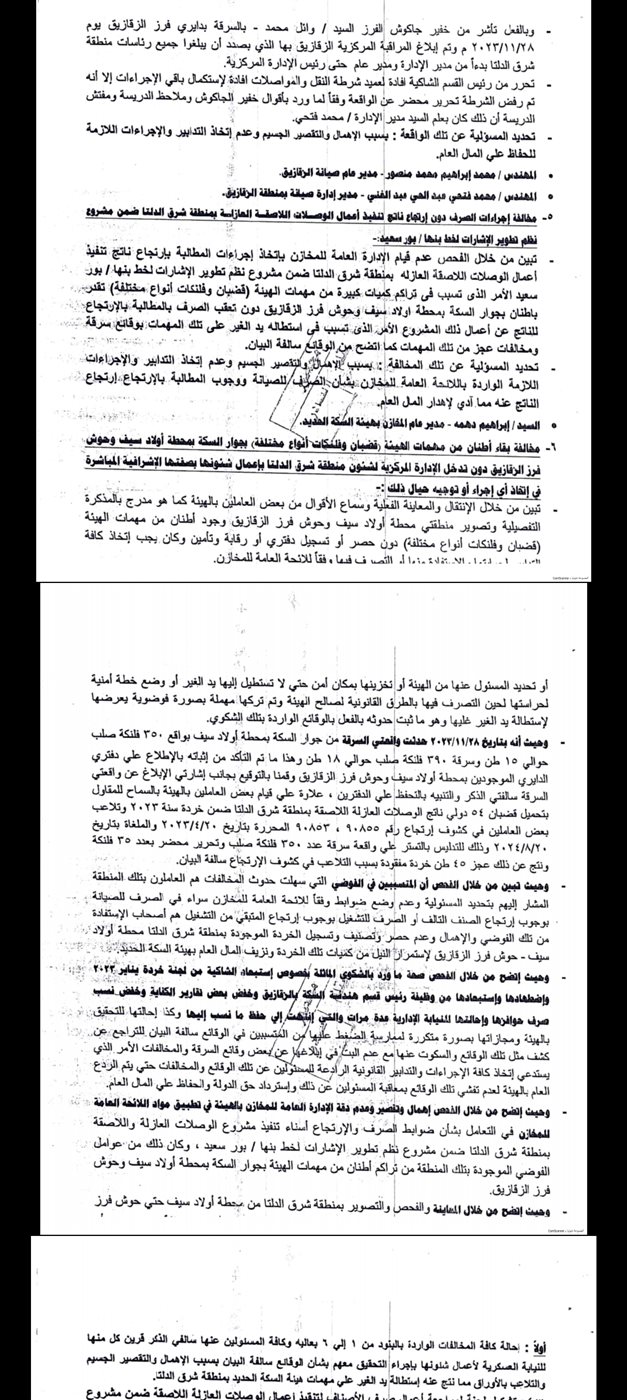 - وبالفعل تأشر من خفير جاكوش الفرز السيد / وائل محمد - بالسرقة بدايري فرز الزقازيق يوم
٢٠٢٣/١١/٢٨ م وتم إبلاغ المراقبة المركزية الزقازيق بها الذي بصدد أن يبلغوا جميع رئاسات منطقة
شرق الدلتا بدءاً من مدير الإدارة ومدير عام حتى رئيس الإدارة المركزية.
- تحرر من رئيس القسم الشاكية افادة لعميد شرطة النقل والمواصلات افادة لإستكمال باقي الإجراءات إلا أنه
تم رفض الشرطة تحرير محضر عن الواقعة وفقاً لما ورد بأقوال خفير الجاكوش وملاحظ الدريسة ومفتش
الدريسة أن ذلك كان بعلم السيد مدير الإدارة / محمد فتحي.
- تحديد المسؤلية عن تلك الواقعة : بسبب الإهمال والتقصير الجسيم وعدم إتخاذ التدابير والإجراءات اللازمة
للحفاظ علي المال العام.
• المهندس / محمد إبراهيم محمد منصور - مدير عام صيانة الزقازيق.
• المهندس / محمد فتحي عبد الحي عبد الغني - مدير إدارة صيانة بمنطقة الزقازيق.
٥- مخالفة إجراءات الصرف دون إرتجاع ناتج تنفيذ أعمال الوصلات اللاصقة العازلة بمنطقة شرق الدلتا ضمن مشروع
نظم تطوير الإشارات لخط بنها / بور سعيد:-
- تبين من خلال الفحص عدم قيام الإدارة العامة للمخازن بإتخاذ إجراءات المطالبة بإرتجاع ناتج تنفيذ
أعمال الوصلات اللاصقة العازله بمنطقة شرق الدلتا ضمن مشروع نظم تطوير الإشارات لخط بنها / بور
سعيد الأمر الذى تسبب فى تراكم كميات كبيرة من مهمات الهيئة (قضبان وفلنكات أنواع مختلفة) تقدر
باطنان بجوار السكة بمحطة اولاد سيف وحوش فرز الزقازيق دون تعقب الصرف بالمطالبة بالإرتجاع
للناتج عن أعمال ذلك المشروع الأمر الذى تسبب في استطاله يد الغير على تلك المهمات بوقائع سرقة
ومخالفات عجز من تلك المهمات كما اتضح من الوقائع سالفة البيان.
- تحديد المسؤلية عن تلك المخالفة : بسبب الإهمال والتقصير الجسيم وعدم إتخاذ التدابير والإجراءات
اللازمة الواردة باللائحة العامة للمخازن بشأن الصرف للصيانة ووجوب المطالبة بالإرتجاع إرتجاع
الناتج عنه مما آدي لإهدار المال العام.
• السيد / إبراهيم دهمه - مدير عام المخازن بهيئة السكة الحديد.
٦- مخالفة بقاء أطنان من مهمات الهيئة (قضبان وفلنكات أنواع مختلفة) بجوار السكة بمحطة أولاد سيف وحوش
فرز الزقازيق دون تدخل الإدارة المركزية لشئون منطقة شرق الدلتا بإعمال شئونها بصفتها الإشرافية المباشرة
في إتخاذ أي إجراء أو توجيه حيال ذلك :-
- تبين من خلال الإنتقال والمعاينة الفعلية وسماع الأقوال من بعض العاملين بالهيئة كما هو مدرج بالمذكرة
التفصيلية وتصوير منطقتي محطة أولاد سيف وحوش فرز الزقازيق وجود أطنان من مهمات الهيئة
(قضبان وفلنكات أنواع مختلفة) دون حصر أو تسجيل دفتري أو رقابة وتأمين وكان يجب إتخاذ كافة
أو التصرف فيها وفقاً للائحة العامة للمخازن.
أو تحديد المسئول عنها من الهيئة أو تخزينها بمكان أمن حتي لا تستطيل إليها يد الغير أو وضع خطة أمنية
لحراستها لحين التصرف فيها بالطرق القانونية لصالح الهيئة وتم تركها مهملة بصورة فوضوية يعرضها
لإستطالة يد الغير غليها وهو ما ثبت حدوثه بالفعل بالوقائع الواردة بتلك الشكوي.
- وحيث أنه بتاريخ ٢٠٢٣/١١/٢٨ حدثت واقعتي السرقة من جوار السكة بمحطة أولاد سيف بواقع ٣٥٠ فلنكة صلب
حوالي ١٥ طن وسرقة ٣٩٠ فلنكة صلب حوالي ١٨ طن وهذا ما تم التأكد من إثباته بالإطلاع علي دفتري
الدايري الموجودين بمحطة أولاد سيف وحوش فرز الزقازيق وقمنا بالتوقيع بجانب إشارتي الإبلاغ عن واقعتي
السرقة سالفتي الذكر والتنبيه بالتحفظ علي الدفترين ، علاوة علي قيام بعض العاملين بالهيئة بالسماح للمقاول
بتحميل قضبان ٥٤ دولي ناتج الوصلات العازلة اللاصقة بمنطقة شرق الدلتا ضمن خردة سنة ٢٠٢٣ وتلاعب
بعض العاملين في كشوف إرتجاع رقم ٩٠٨٥٥ ، ٩٠٨٥٣ المحررة بتاريخ ٢٠٢٣/٤/٢٠ والملغاة بتاريخ
٢٠٢٤/٨/٢٠ وذلك للتدليس بالتستر علي واقعة سرقة عدد ٣٥٠ فلنكة صلب وتحرير محضر بعدد ٣٥ فلنكة
ونتج عن ذلك عجز ٤٥ طن خردة مفقودة بسبب التلاعب في كشوف الإرتجاع سالفة البيان.
- وحيث تبين من خلال الفحص أن المتسببين في الفوضي التي سهلت حدوث المخالفات هم العاملون بتلك المنطقة
المشار إليهم بتحديد المسئولية وعدم وضع ضوابط وفقاً للائحة العامة للمخازن سواء في الصرف للصيانة
بوجوب إرتجاع الصنف التالف أو الصرف للتشغيل بوجوب إرتجاع المتبقي من التشغيل هم أصحاب الإستفادة
من تلك الفوضي والإهمال وعدم حصر وتصنيف وتسجيل الخردة الموجودة بمنطقة شرق الدلتا محطة أولاد
سيف - حوش فرز الزقازيق لإستمرار النيل من كميات تلك الخردة ونزيف المال العام بهيئة السكة الحديد.
- وحيث إتضح من خلال الفحص صحة ما ورد بالشكوي الماثلة بخصوص إستبعاد الشاكية من لجنة خردة يناير ٢٠٢٣
وإضطهادها وإستبعادها من وظيفة رئيس قسم هندسة السكة بالزقازيق وخفض بعض تقارير الكفاية وخفض نسب
صرف حوافزها وإحالتها للنيابة الإدارية عدة مرات والتي إنتهت إلي حفظ ما نسب إليها وكذا إحالتها للتحقيق
بالهيئة ومجازاتها بصورة متكررة لممارسة الضغط عليها من المتسببين في الوقائع سالفة البيان للتراجع عن
كشف مثل تلك الوقائع والسكوت عنها مع عدم البت في إبلاغها عن بعض وقائع السرقة والمخالفات الأمر الذي
يستدعي إتخاذ كافة الإجراءات والتدابير القانونية الرادعة للمسئولين عن تلك الوقائع والمخالفات حتي يتم الردع
العام بالهيئة لعدم تفشي تلك الوقائع بمعاقبة المسئولين عن ذلك وإسترداد حق الدولة والحفاظ علي المال العام.
- وحيث إتضح من خلال الفحص إهمال وتقصير وعدم دقة الإدارة العامة للمخازن بالهيئة في تطبيق مواد اللائحة العامة
للمخازن في التعامل بشأن ضوابط الصرف والإرتجاع أثناء تنفيذ مشروع الوصلات العازلة واللاصقة
بمنطقة شرق الدلتا ضمن مشروع نظم تطوير الإشارات لخط بنها / بور سعيد ، وكان ذلك من عوامل
الفوضي الموجودة بتلك المنطقة من تراكم أطنان من مهمات الهيئة بجوار السكة بمحطة أولاد سيف وحوش
فرز الزقازيق.
- وحيث إتضح من خلال المعاينة والفحص والتصوير بمنطقة شرق الدلتا من محطة أولاد سيف حتي حوش فرز
أولاً : إحالة كافة المخالفات الواردة بالبنود من ١ إلي ٦ بعاليه وكافة المسئولين عنها سالفي الذكر قرين كل منها
للنيابة العسكرية لأعمال شئونها بإجراء التحقيق معهم بشأن الوقائع سالفة البيان بسبب الإهمال والتقصير الجسيم
والتلاعب بالأوراق مما نتج عنه إستطالة يد الغير علي مهمات هيئة السكة الحديد بمنطقة شرق الدلتا.